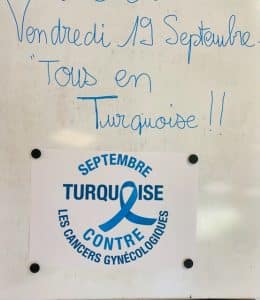 Vendredi 19 Septembre
"Tous en
Turquoise !!
SEPTEMBRE
TURQUOISE
CONTRE
LES CANCERS GYNÉCOLOGIQUES